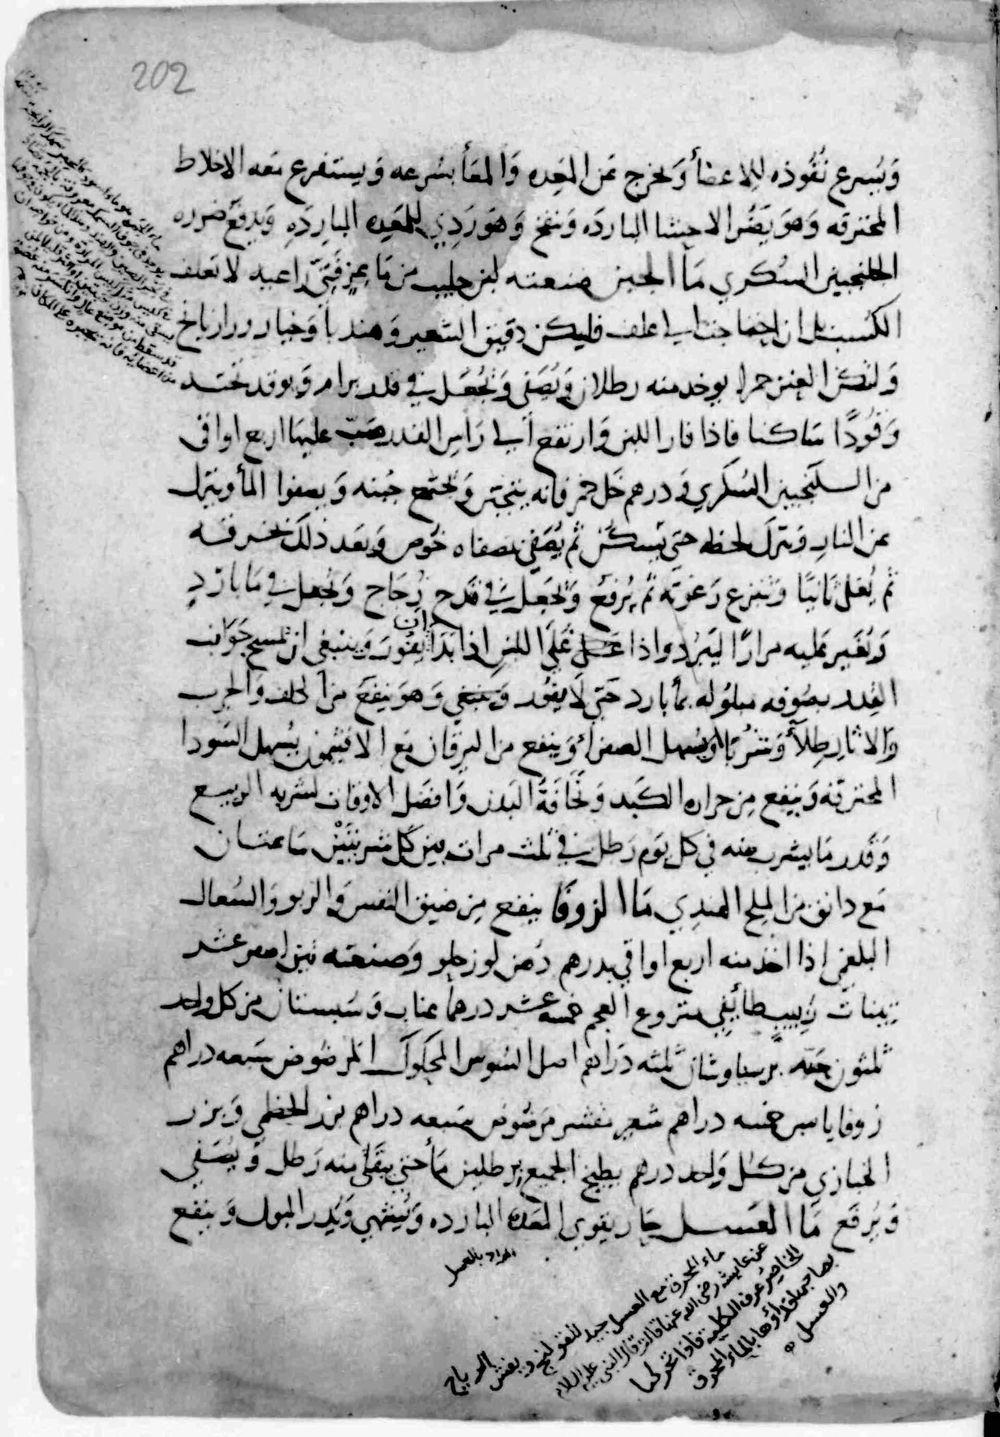 202
ويسرع نفوذه للاعضا ويخرج عن المعده والمعا بسرعه ويستفرع معه الاخلاط
المحترقه وهو يضر الاحشا البارده وينفخ وهو ردي للمعده البارده ويدفع ضرره
الجلنجبين السكري ما الجبن صنعته لبن حليب من ماعز فتي راعيه لا تعلف
الكسب بل ان احتاجت الى علف فليكن دقيق الشعير وهندبا وخيار ورازيانج
ولتكن العنز حمرا يوخذ منه رطلان ويصفى ويجعل في قدر برام ويوقد تحته
وقودا ساكنا فاذا فار اللبن وارتفع الى راس القدر صب عليها اربع اواقي
من السكنجبين السكري ودرهم خل خمر فانه يتجبن ويجتمع جبنه ويصفوا الما وينزل
عن النار ويترك لحظه حتى يسكن ثم يصفى بمصفاه خوص وبعد ذلك بخرقه
ثم يغلى ثانيا وينزع رغوته ثم يرفع ويجعل في قدح زجاج ويجعل في ما بارد
ويغير عليه مرارا ليبرد واذا غلى اللبن اذا بدا ان يفور وينبغي ان تمسح جوانب
القدر بصوفه مبلوله بما بارد حتى لا يفور وهو ينفع من الكلف والجرب
والاثار طلا وشربا ويسهل الصفرا وينفع من اليرقان مع الافتيمون يسهل السودا
المحترقه وينفع من حراره الكبد ونحافة البدن وافضل الاوقات لشربه الربيع
وقدر ما يشرب منه في كل يوم رطل في ثلث مرات بين كل شربتين ساعتان
مع دانق من الملح الهندي ما الزوفا ينفع من ضيق النفس والربو والسعال
البلغمي اذا اخذ منه اربع اواقي بدرهم دهن لوز حلو وصنعته تين اصفر عشر
تينات زبيب طائفي منزوع العجم خمسه عشر درهما عناب وسبستان من كل واحد
ثلثون حبه برسياوشان ثلثه دراهم اصل السوس المحكوك المرضوض سبعه دراهم
زوفا يابس خمسه دراهم شعير مقشر مرضوض سبعه دراهم بزر الخطمي وبزر
الخبازي من كل واحد درهم يطبخ الجميع برطلين ما حتى يبقى منه رطل ويصفى
ويرفع ما العسل حار يقوي المعده البارده ويشهي ويدر البول وينفع
ماء المحرق مع العسل جيد للقولنج ويفش الرياح
عن عايشه رضي الله عنها قالت قال النبي عليه السلام
الخاصره عرق الكليه فاذا تحركت
بصاحبها فداؤها بالماء المحرق
والعسل